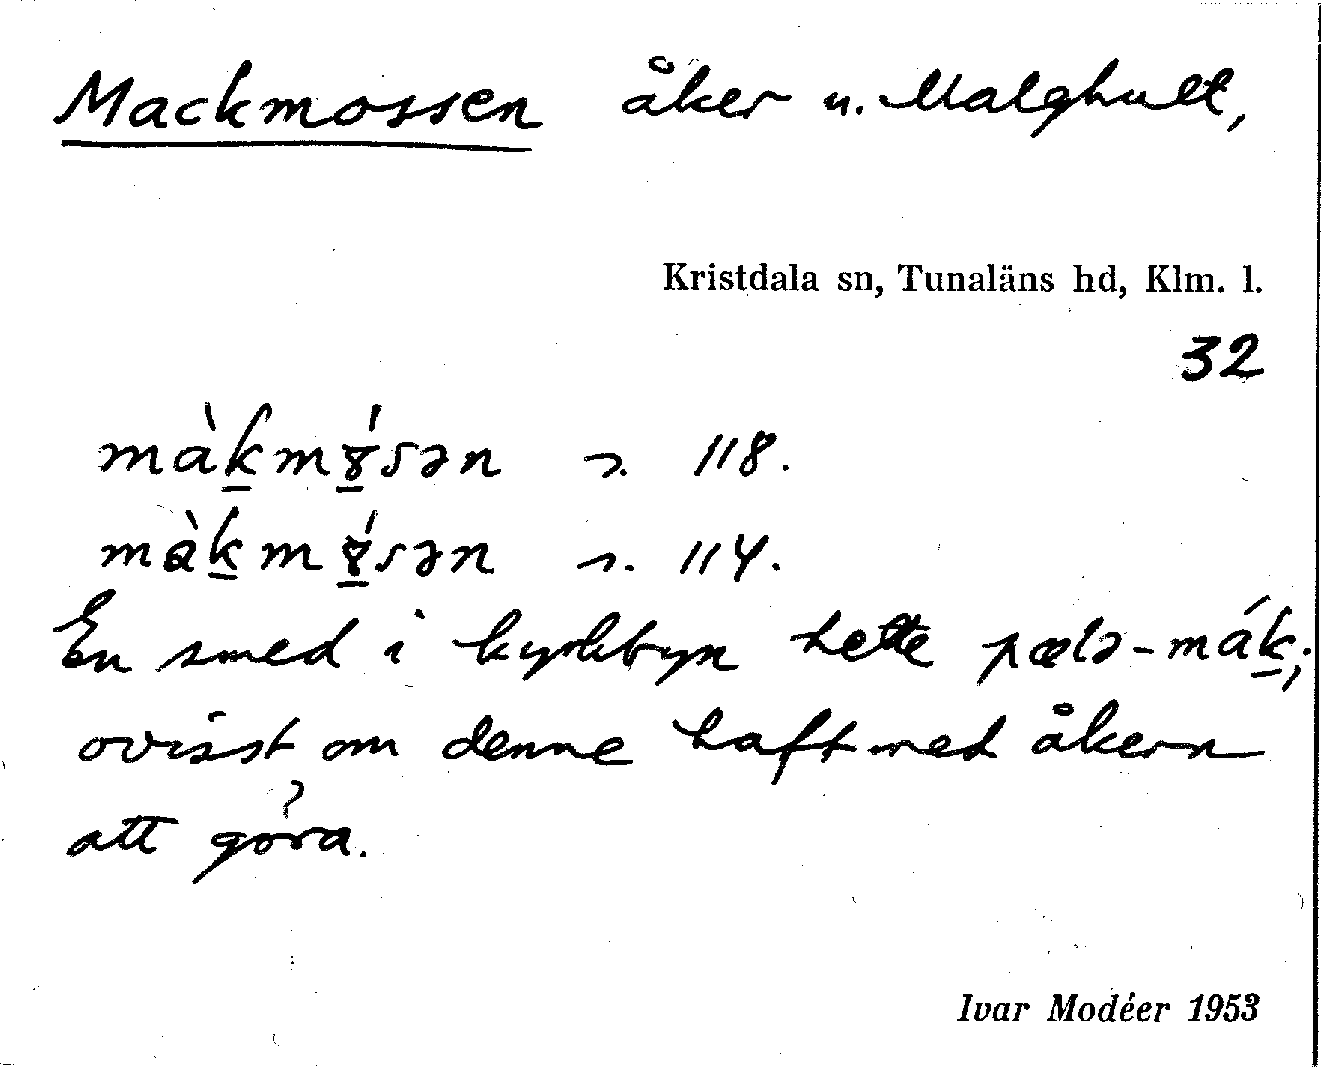 Mackmossen åker u. Malghult,
Kristdala sn, Tunaläns hd, Klm. l.
32
màk̲mɤ̲́sən 118.
màk̲mɤ̲́sən 114.
En smed i kyrkbyn hette pælə-mák̲;
ovisst om denne haft med åkern
att göra.
Ivar Modéer 1953